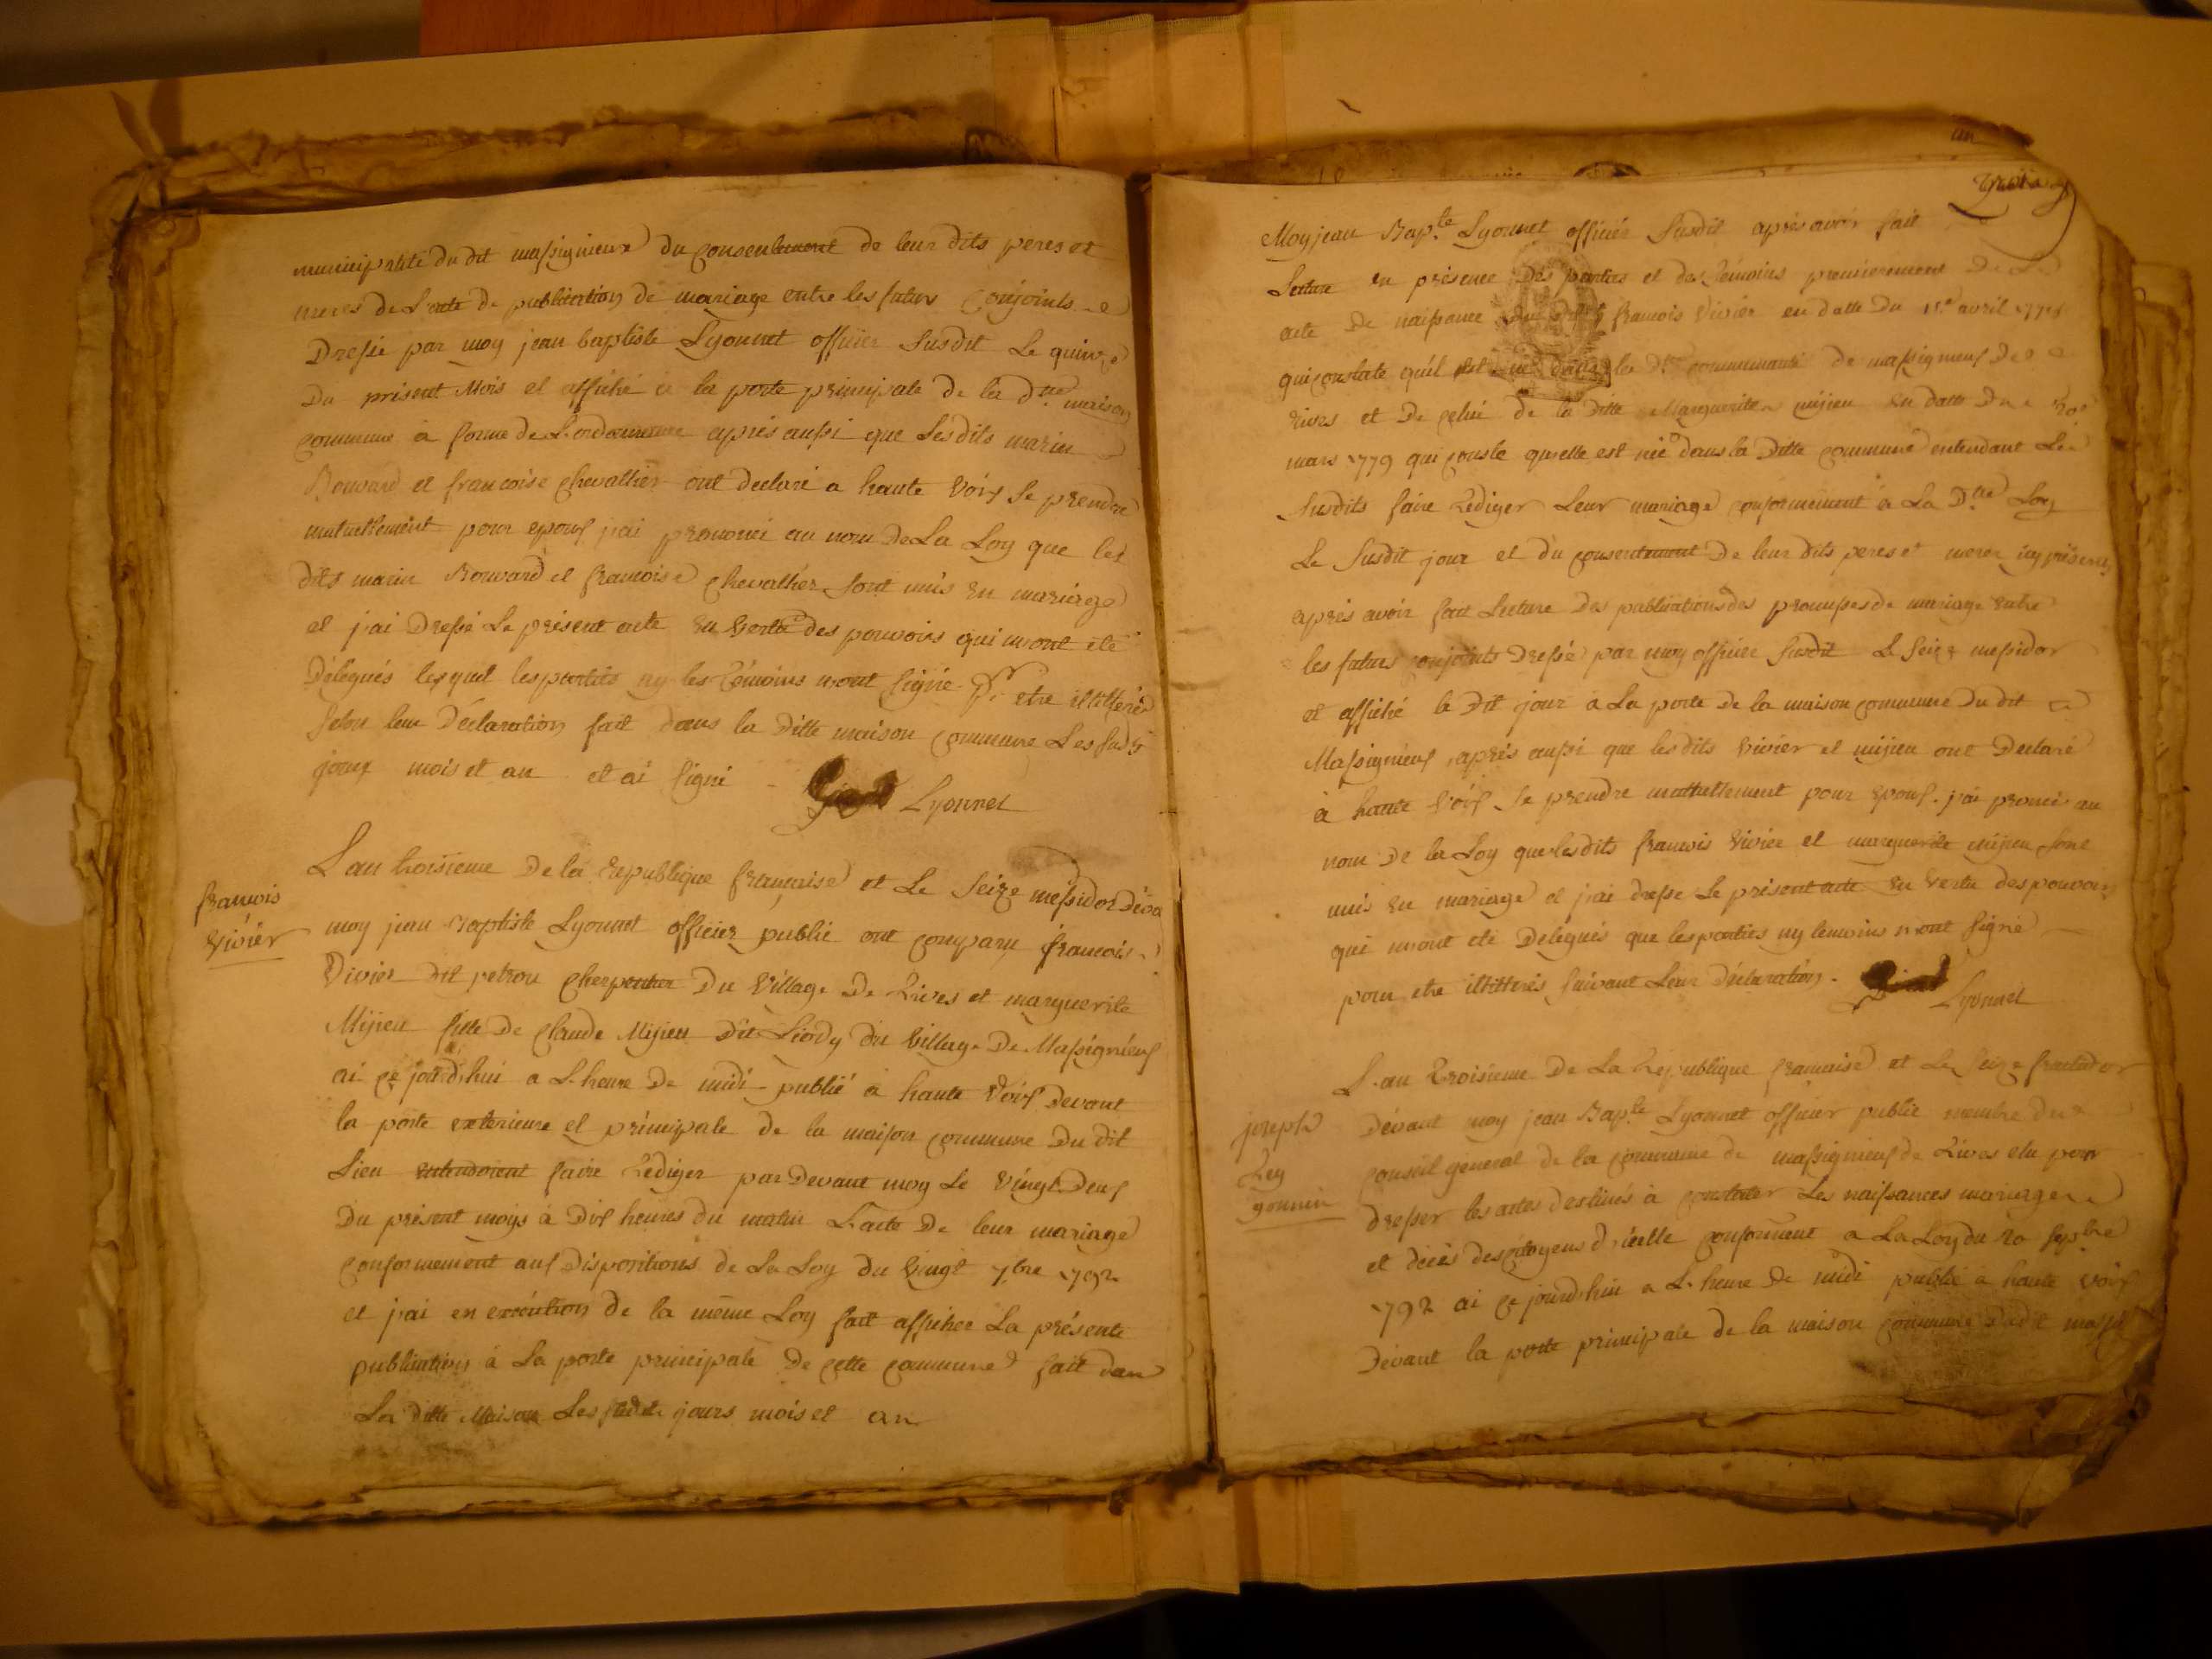 municipalité du dit massignieux du consentement de leur dits peres et
meres de l'acte de publication de mariage entre les futurs conjoints
Dressé par moy jean baptiste Lyonnet officier susdit Le quinze
Du présent Mois et affiché a la porte principale de la dtte maison
commune a forme de L'ordonnance aprés aussi que Lesdits marin
Bouvard et francoise chevallier ont declaré a haute voix se prendre
mutuellement pour epoux j'ai prononcé au nom De La Loy que les
dits marin Bouvard et francoise chevallier sont unis en mariage
et j'ai Dressé Le présent acte en vertu des pouvoirs qui mont été
Délegués lesquel les parties ny les témoins n'ont signé pr etre illitteré
selon leur déclaration fait dans la ditte maison commune Les susd
jours mois et an et ai signé Lyonnet
francois
vivier
L'an troisieme De la republique française et Le seize messidor déva
moy jean Baptiste Lyonnet officier public ont comparu francois
Vivier dit petrou charpentier Du village De Rives et marguerite
Mijieu fille De claude Mijieu Dit Liody du village De Massignieux
ai ce jourd'hui a L'heure De midi publié à haute voix Devant
la porte exterieure et principale de la maison commune Du dit
Lieu entendoient faire rédiger par Devant moy Le vingt Deux
Du présent moys à Dix heures du matin L'acte De leur mariage
conformement aux Dispositions de La Loy du vingt 7bre 1792
et j'ai en exécution de la même Loy fait afficher La présente
publication à La porte principale De cette commune fait dan
La ditte Maison Les jours mois et an
un
trois
Moy jean Bapte Lyonnet officier susdit aprés avoir fait
Lecture en présence Des parties et des témoins premierement De
acte De naissance francois Vivier en datte Du avril
qui constate qu'il est né dans la dtte communauté de massignieux De
rives et De celui de la ditte Marguerite mijieu en datte Du
mars 1779 qui conste qu'elle est née dans la Ditte commune entendant Le
susdits faire rediger Leur mariage conformément à La Dtte Loy
Le susdit jour et du consentement De leur dits peres et meres icy présens
aprés avoir fait Lecture Des publications des promesses de mariage entre
les futurs conjoints Dressé par moy officier susdit Le seize messidor
et affiché le Dit jour à La porte De la maison commune Du dit
Massignieux, aprés aussi que les dits vivier et mijieu ont Declaré
à haute voix se prendre muttuellement pour epoux. j'ai prononcé au
nom De la Loy que lesdits francois Vivier et marguerite mijieu sont
unis en mariage et j'ai dressé Le présent acte en vertu des pouvoirs
qui m'ont été Delegués que les parties ny temoins n'ont signé
pour etre illittérés suivant Leur Déclaration. Lyonnet
joseph
Rey
gonnin
L'an troisieme De La république française et Le seize fructidor
Dévant moy jean Bapte Lyonnet officier public membre du
conseil général de la commune de massignieux de Rives elu pour
dresser les actes destinés à constater Les naissances mariages
et décès des citoyens d'icelle conforment a La Loy du 20 septbre
1792 ai ce jourd'hui a L'heure De midi publié a haute voix
Dévant la porte principale de la maison commune dudit